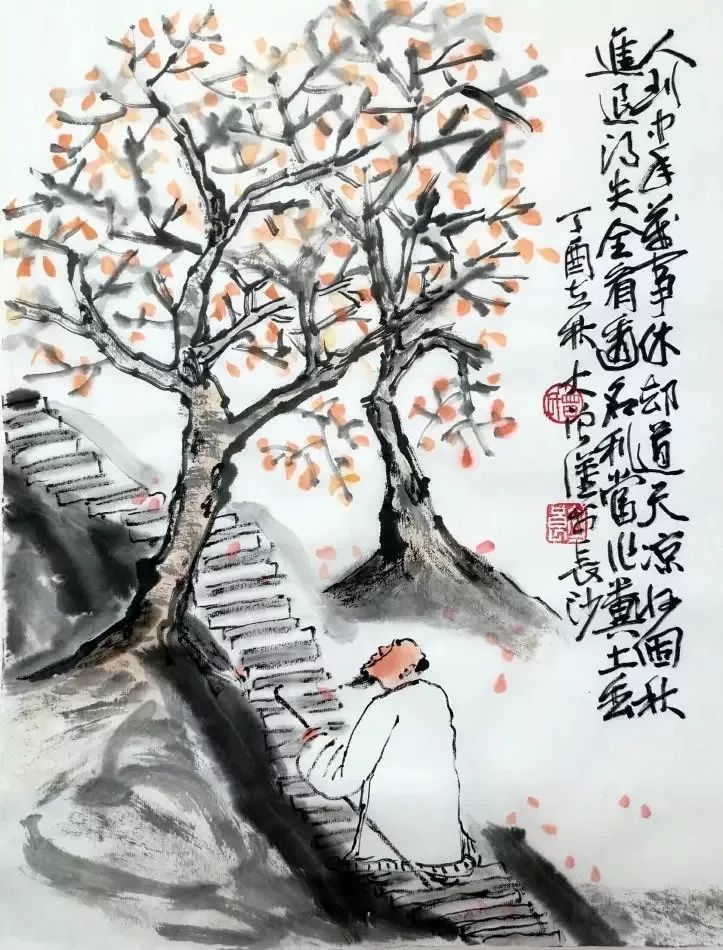 人到中年萬事休却道天凉好個秋
進退得失全看透名利當作糞土丢
丁酉立秋大於長沙